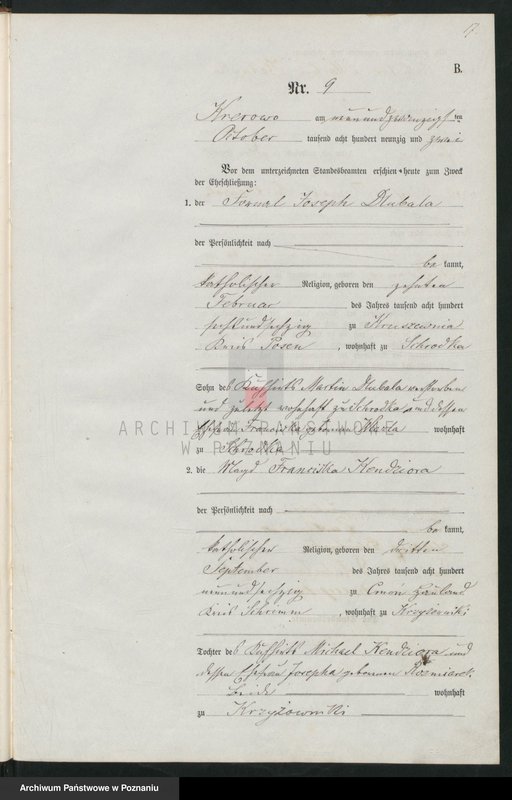 17.
B.
Nr. 9
Krerowo am neun und zwanzigsten
October tausend acht hundert neunzig und zwei
Vor dem unterzeichneten Standesbeamten erschienen heute zum Zweck
der Eheschließung:
1. der Fornal Joseph Dlubala
der Persönlichkeit nach
bekannt,
katholischer Religion, geboren den zehnten
Februar des Jahres tausend acht hundert
sechsundsechzig zu Kruszewnia
Kreis Posen, wohnhaft zu Schrodka
Sohn des Martin Dlubala verstorben
und zuletzt wohnhaft zu Schrodka und dessen
Ehefrau Franciska geborenen Warta wohnhaft
zu Schrodka
2. die Magd Franciska Kendziora
der Persönlichkeit nach
bekannt,
katholischer Religion, geboren den dritten
September des Jahres tausend acht hundert
neunundsechzig zu Hauland
Kreis Schrimm, wohnhaft zu Krzyżowniki
Tochter des Michael Kendziora und
dessen Ehefrau Josepha geborenen
beide wohnhaft
zu Krzyżowniki
ARCHIWUM PAŃSTWOWE
W POZNANIU
Archiwum Państwowe w Poznaniu